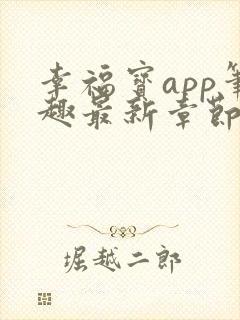 幸福宝app笔
趣最新章节
堀越二郎